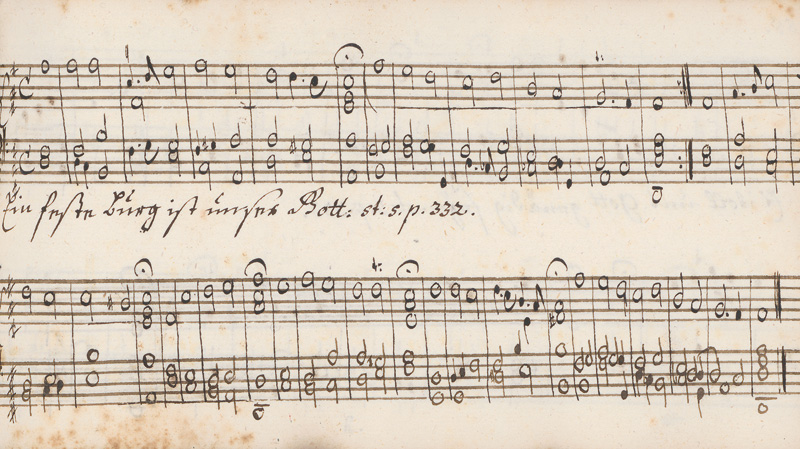 Ein feste burg ist unser Gott: st: s. p. 332.